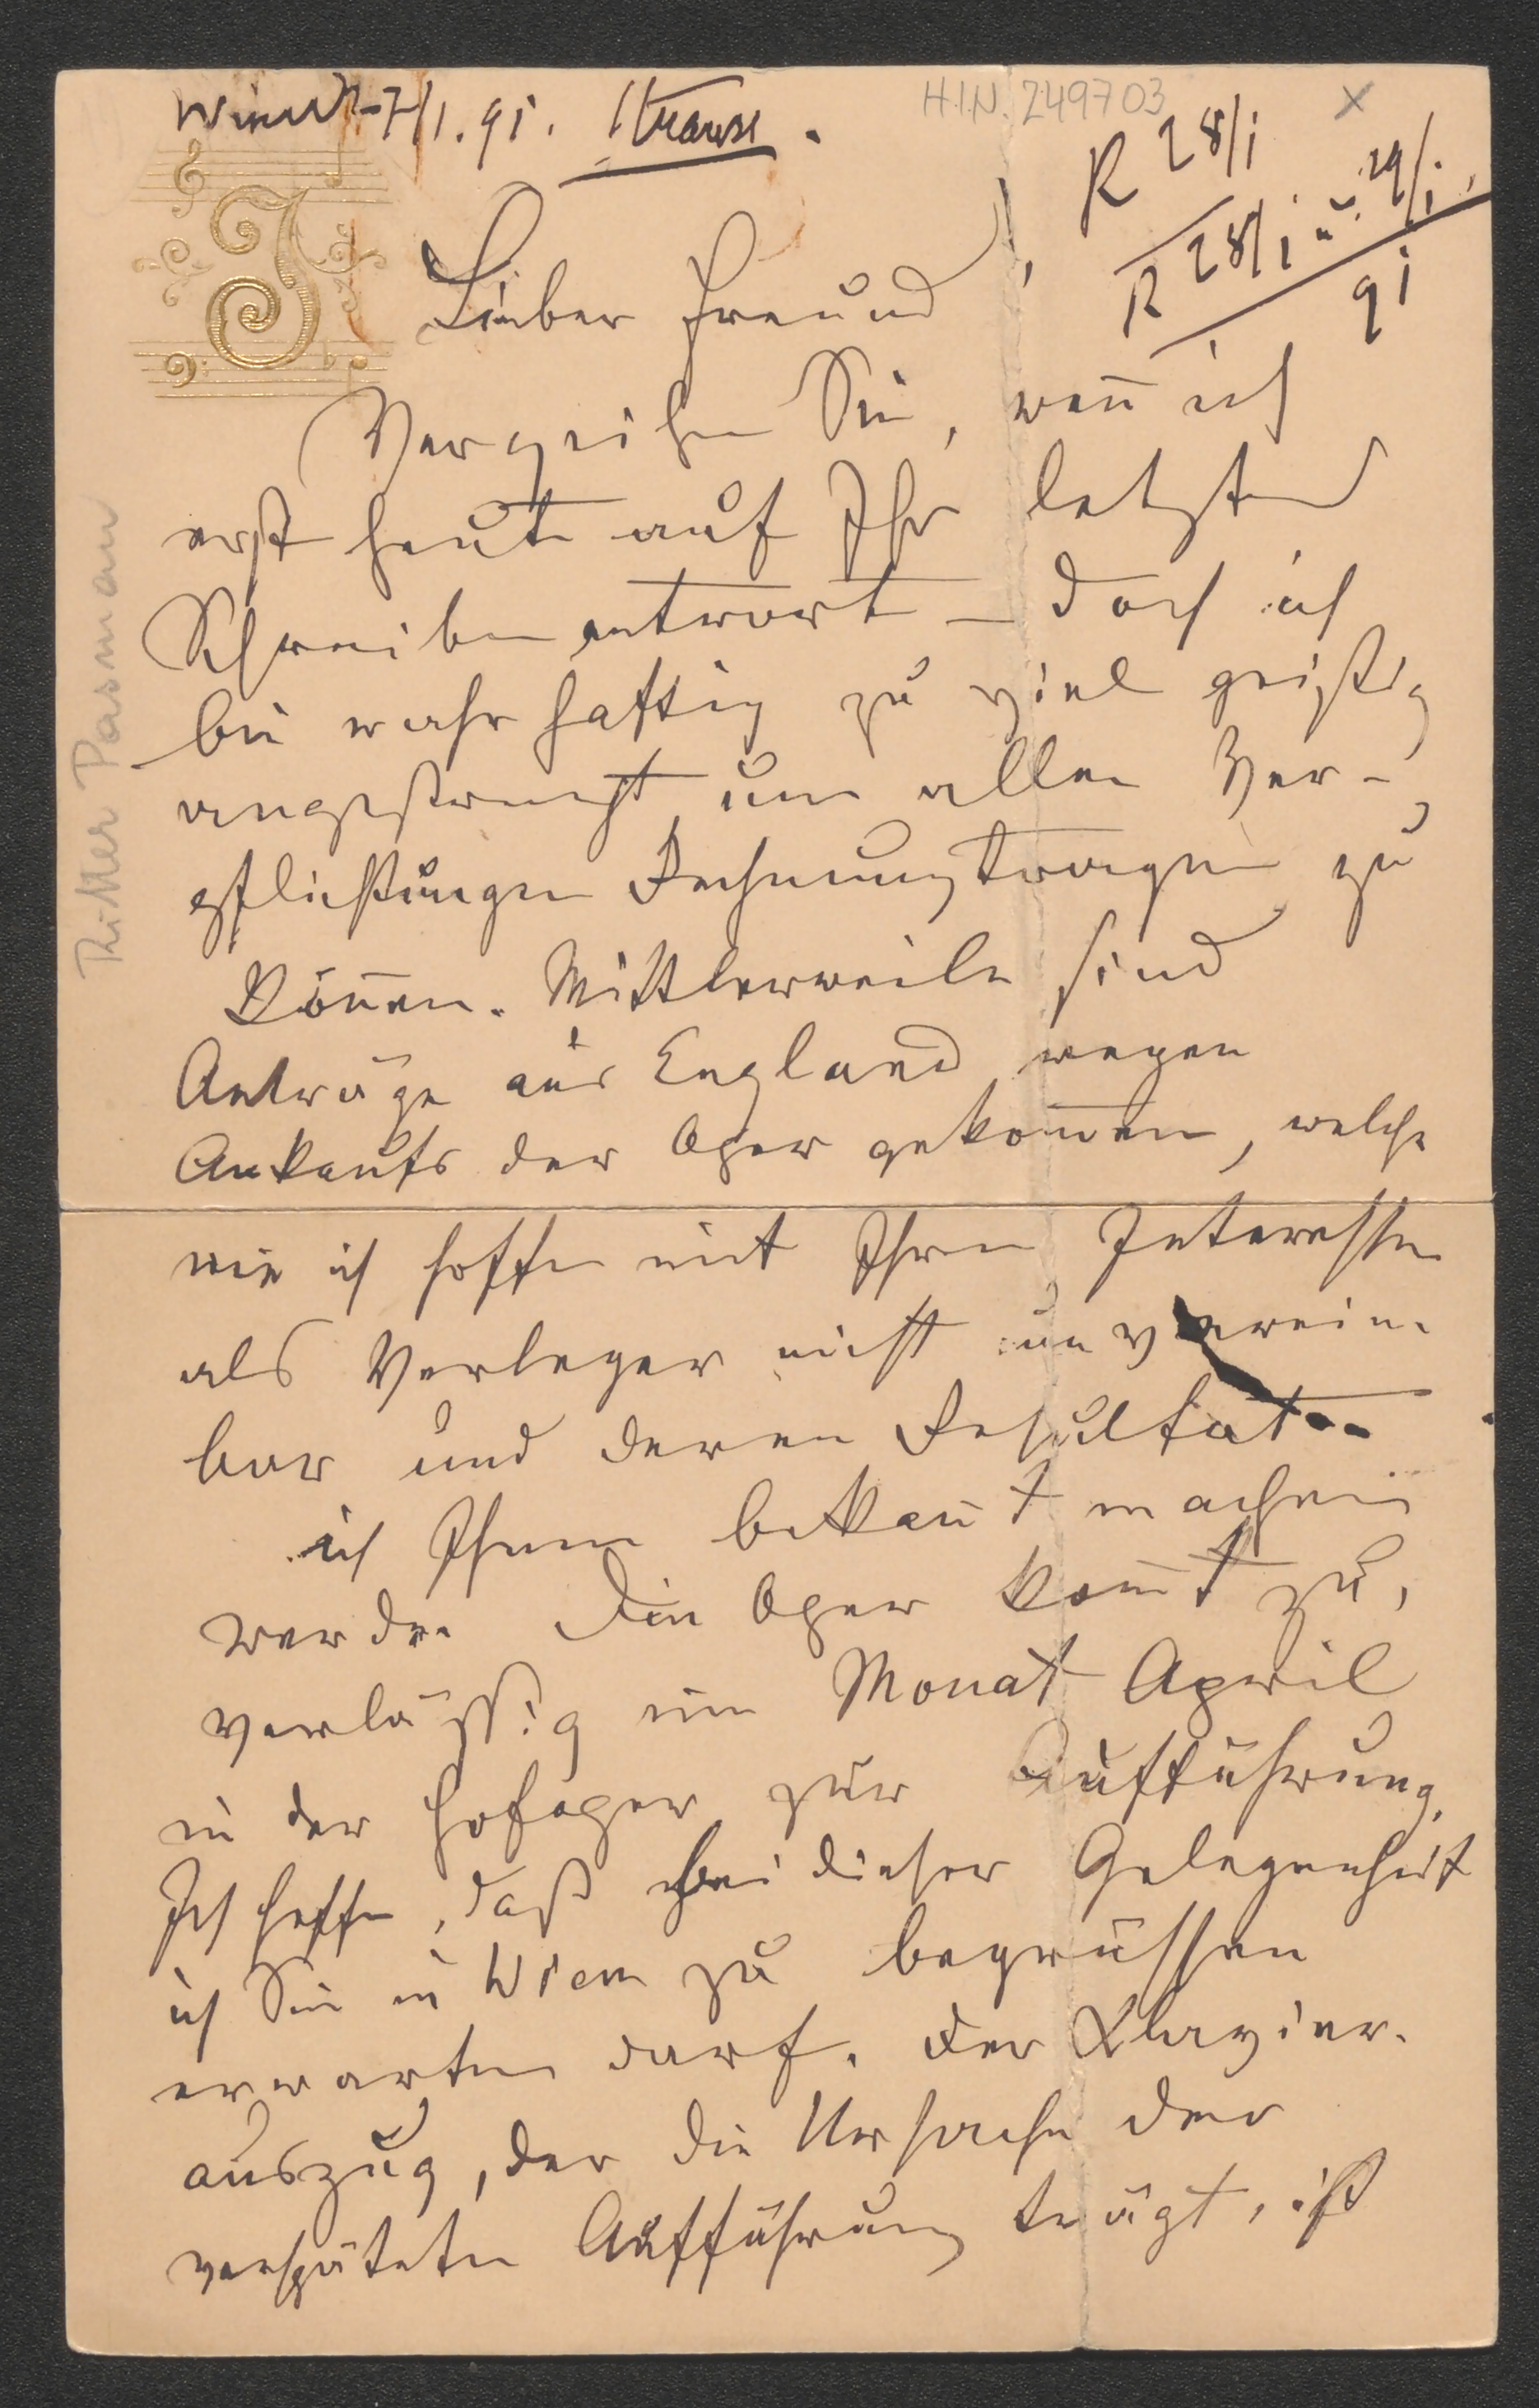 Wien 27/1. 91. Strauss.
H.I.N. 249703
x
R 28/1
R 28/1 u. 29/1.
91
Lieber Freund,
Verzeihen Sie, wen̄ ich
erst heute auf Ihr letztes
Schreiben antworte – doch ich
bin wahrhaftig zu viel geistig
angestrengt um allen Ver-
pflichtungen Rechnung tragen zu
kön̄en. Mittlerweile sind
Anträge aus England wegen
Ankaufs der Oper gekom̄en, welche
wie ich hoffe mit Ihren Interessen
als Verleger nicht unverein-
bar und deren Resultat
ich Ihnen bekan̄t machen
werde. Die Oper kom̄t zu-
verlässig im Monat April
in der Hofoper zur Aufführung.
Ich hoffe, daß bei dieser Gelegenheit
ich Sie in Wien zu begrüssen
erwarten darf. Der Klavier-
auszug, der die Ursache der
verspäteten Aufführung trägt, ist
Ritter Pasman